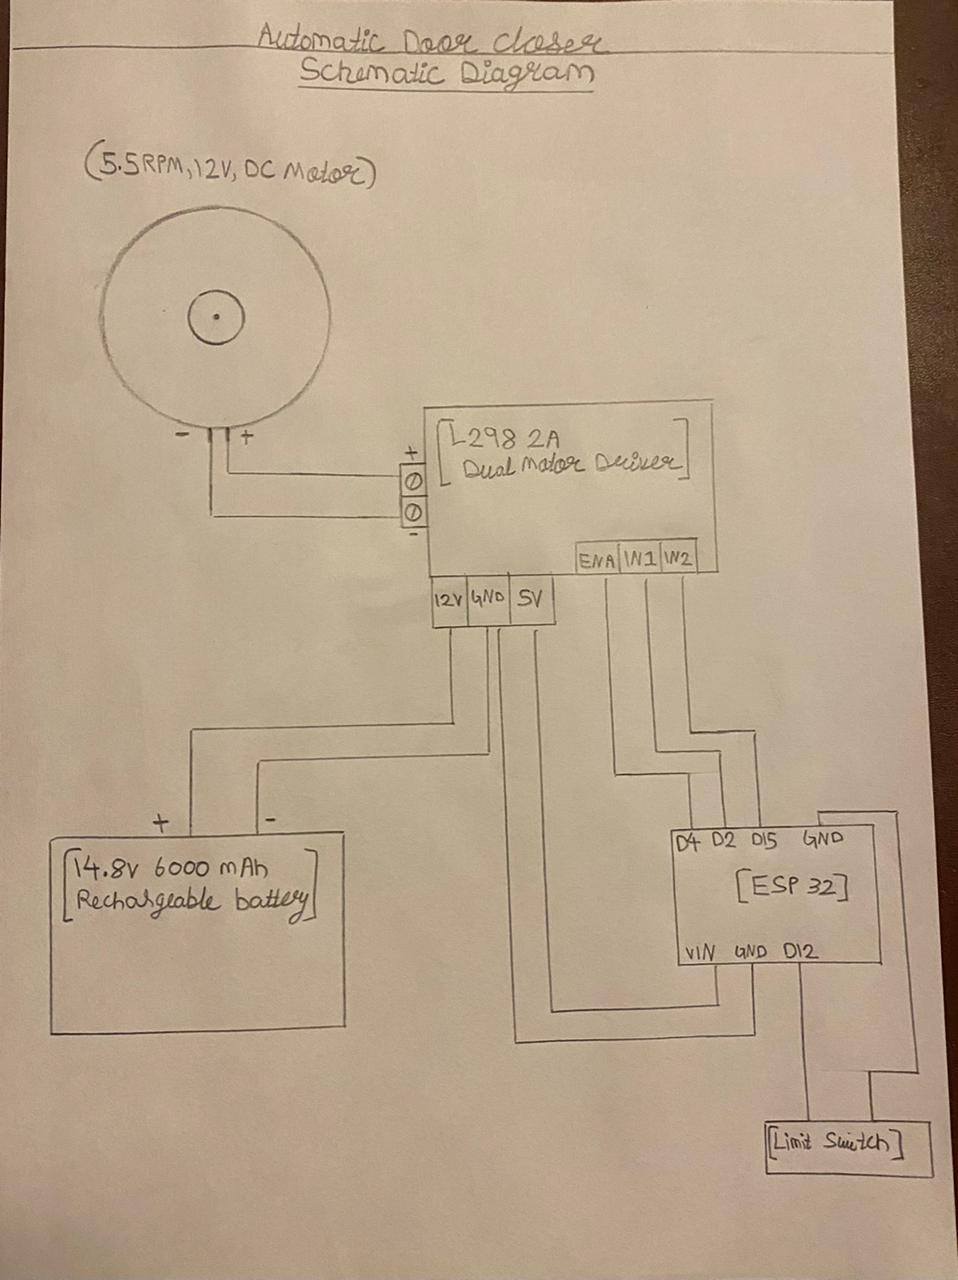 Automatic Door Closer
Schematic Diagram
(5.5RPM,12V, DC Motor)
- +
+
[L298 2A
Dual Motor Driver]
-
ENA IN1 IN2
12V GND 5V
+ -
[14.8v 6000 mAh
Rechargeable battery]
D4 D2 D15 GND
[ESP 32]
VIN GND D12
[Limit Switch]